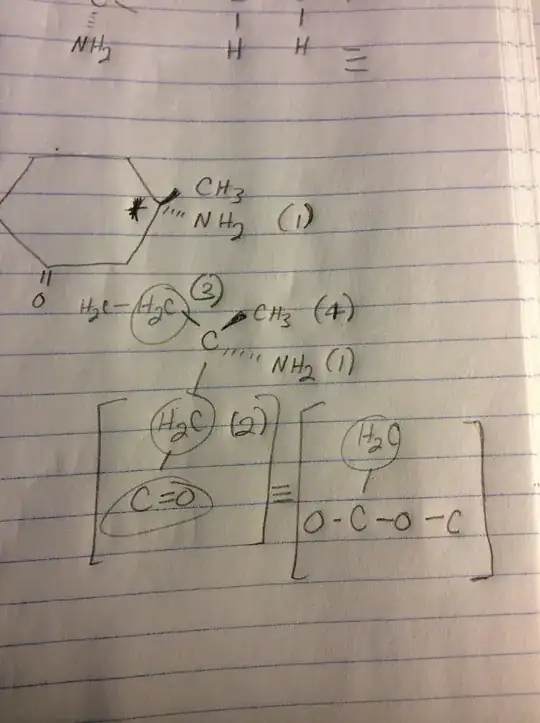 C
NH₂ H H ≡
CH₃
* NH₂ (1)
O
H₂C-H₂C (3) CH₃ (4)
C NH₂ (1)
H₂C (2) H₂C
C=O ≡ O-C-O-C